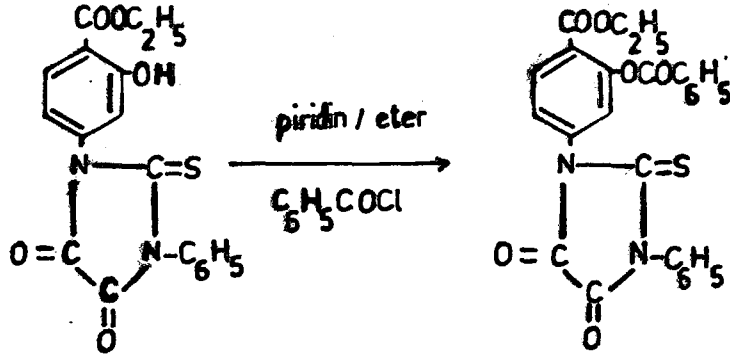 COOC2H5
OH
N C=S
O=C N-C6H5
C
O
piridin / eter
C6H5COCl
COOC2H5
OCOC6H5
N C=S
O=C N-C6H5
C
O